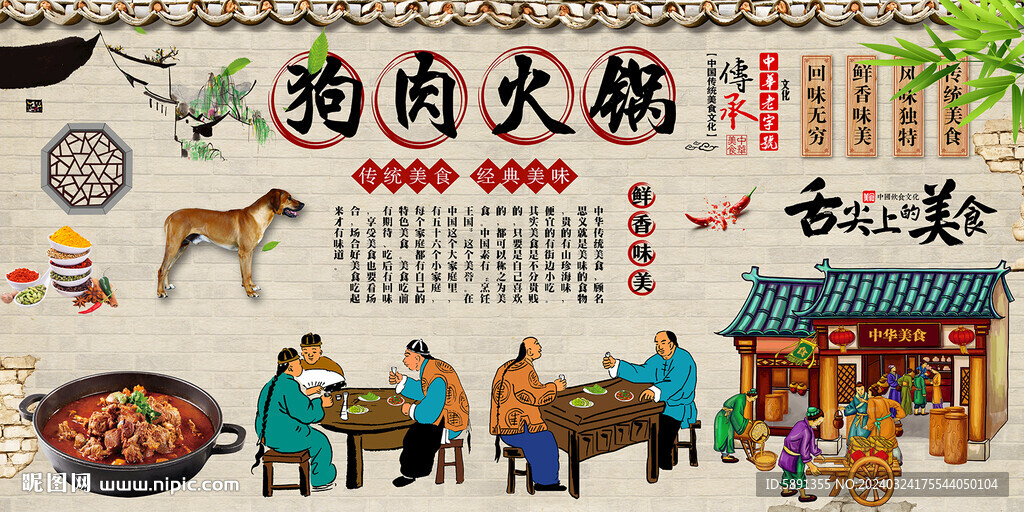 狗肉火锅
【中国传统美食文化】
傳承
中華美食
中華老字號
文化
传统美食
风味独特
鲜香味美
回味无穷
传统美食 经典美味
鲜香味美
中华传统美食,顾名
思义就是美味的食物
,贵的有山珍海味,
便宜的有街边小吃。
其实美食是不分贵贱
的,只要是自己喜欢
的,都可以称之为美
食。中国素有“烹饪
王国”这个美誉。在
中国这个大家庭里,
有五十六个小家庭,
每个家庭都有自己的
特色美食。美食吃前
有期待、吃后有回味
,享受美食也要看场
合,场合好美食吃起
来才有味道。
美食
中國飲食文化
舌尖上的美食
中华美食
昵图网 www.nipic.com
ID:5891355 NO:20240324175544050104